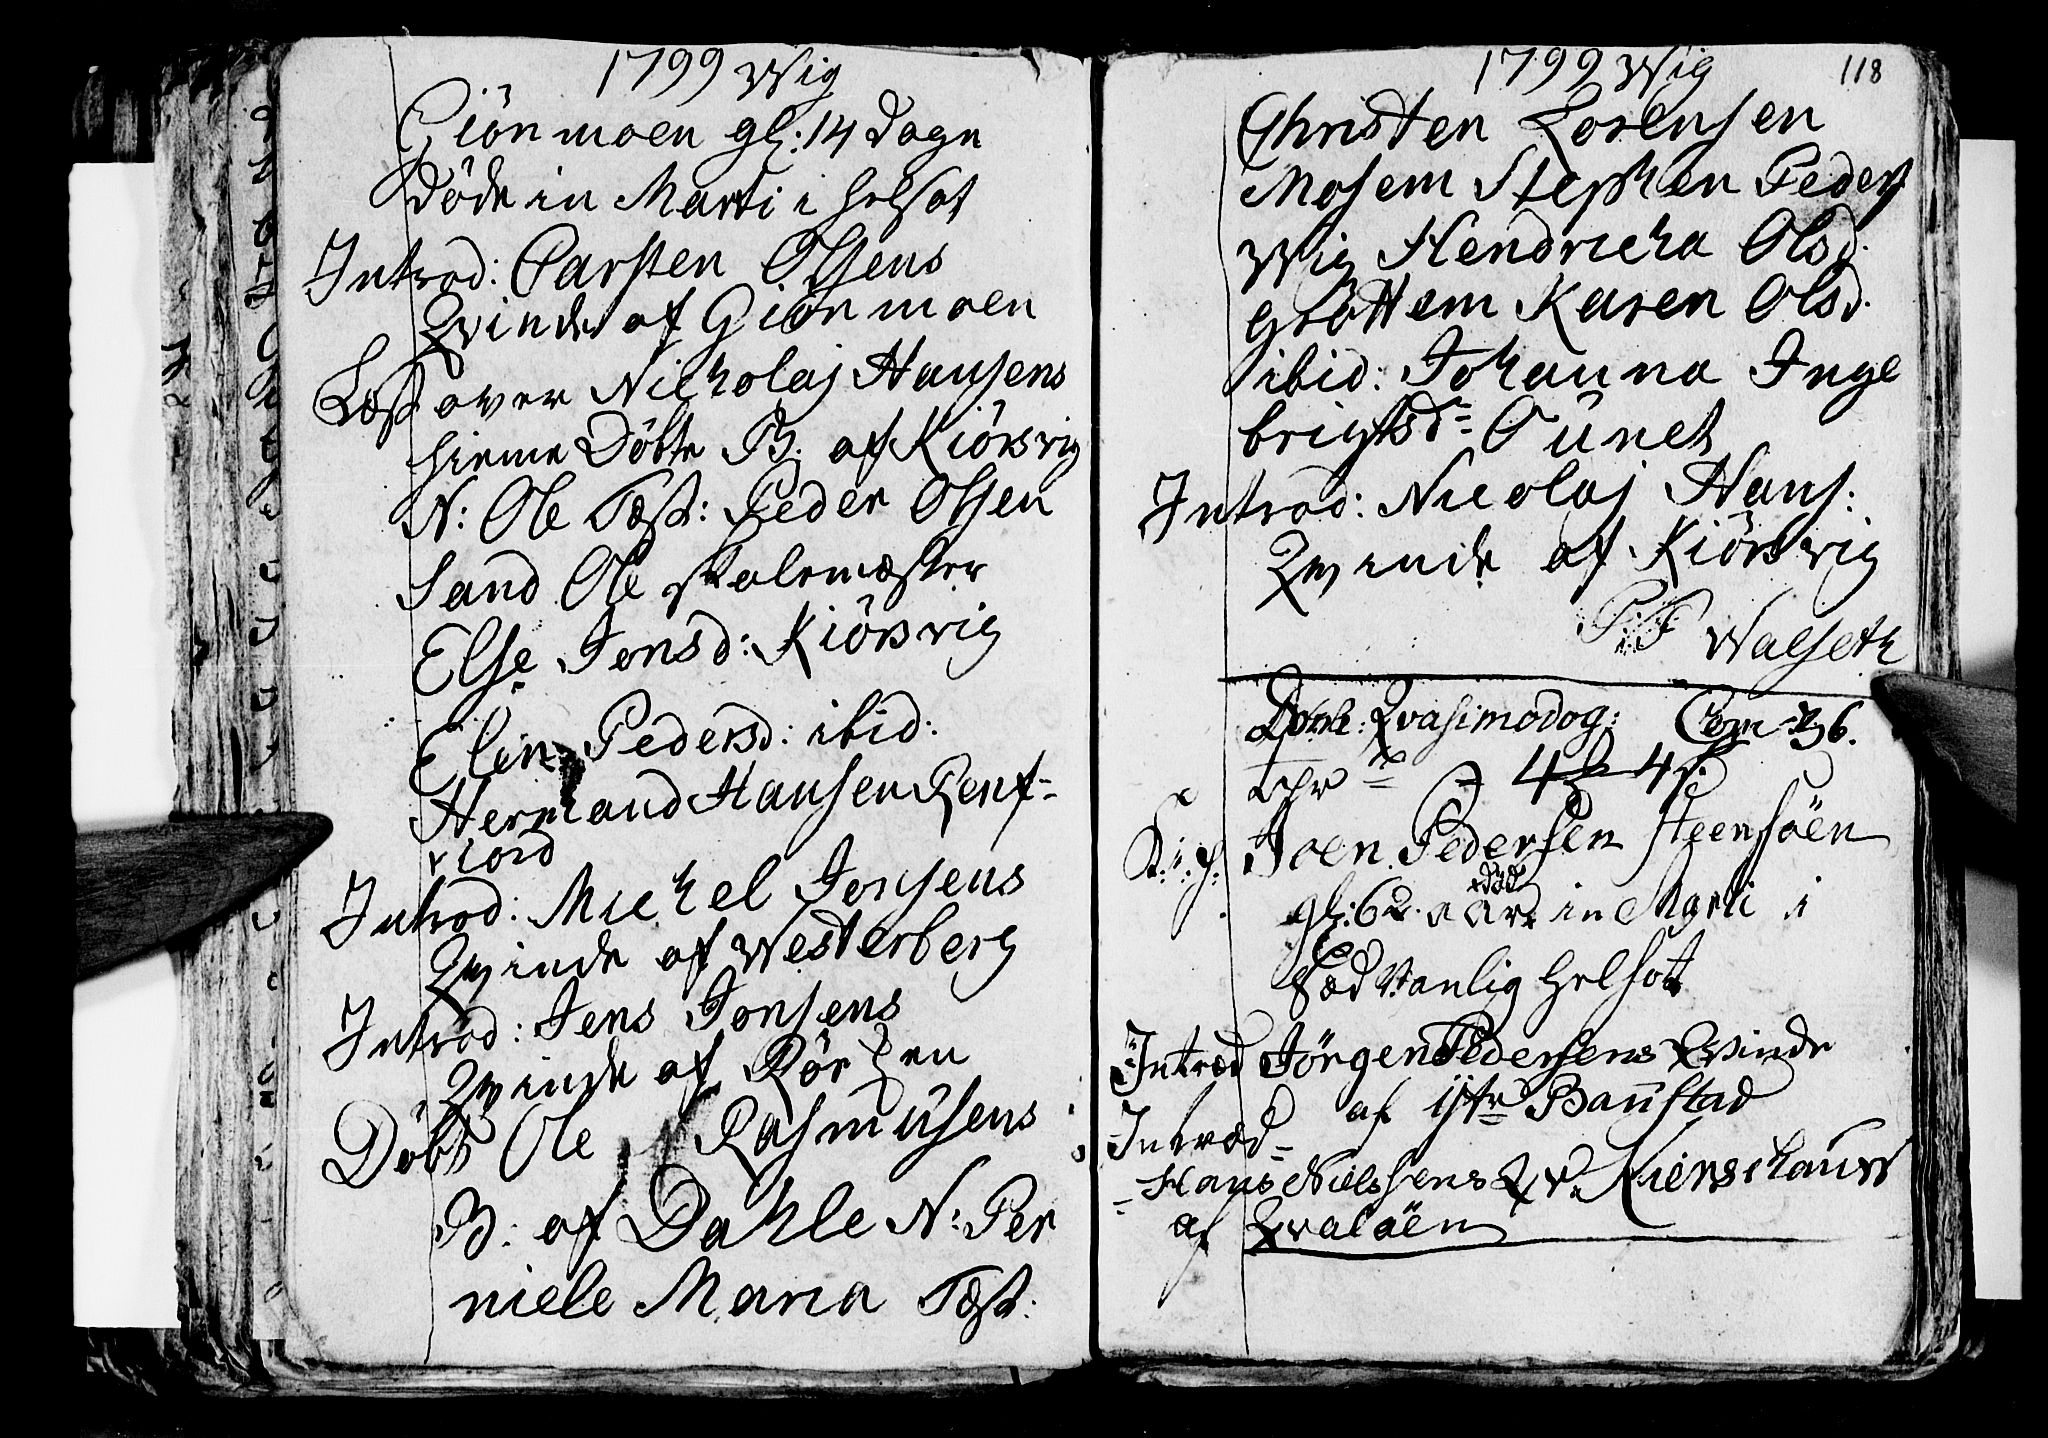 1799 Wig
Giönmoen gl: 14 Dage
Døde in Marti i Helsot
Introd: Carsten Olsens
Qvinde af Giönmoen
Læst over Nicholaj Hansens
hieme Döbte B. af Kiörsvig
N: Ole Test: Peder Olsen
Sand Ole skolemæster
Else Jonsd: Kiörsvig
Elin Pedersd: ibid:
Hermand Hansen Renf-
riord
Introd: Michel Jonsens
Qvinde af Westerberg
Introd: Jens Jonsens
Qvinde af Rör en
Döbt Ole Rasmusens
B: af Dahle N: Per
niele Maria Test:
1799 Wig 118
Christen Lorensen
Mosem Stephen Peders
Wig Hendricha Olsd.
Gröttem Karen Olsd.
ibid: Johanna Inge
brigtsd= Tünet
Introd: Nicolaj Hans:
Qvinde af Kiörsvig
P: F Walseth
Qvasimodog: Com 36.
4 4
Joen Pedersen Steensöen
gl: 62 aar død in Marti i
Sædvanlig Helsot
Introd Jörgen Pedersens Qvinde
af ytre Baustad
Introd=
Hans Nielsens Qv.
af Qvalöen